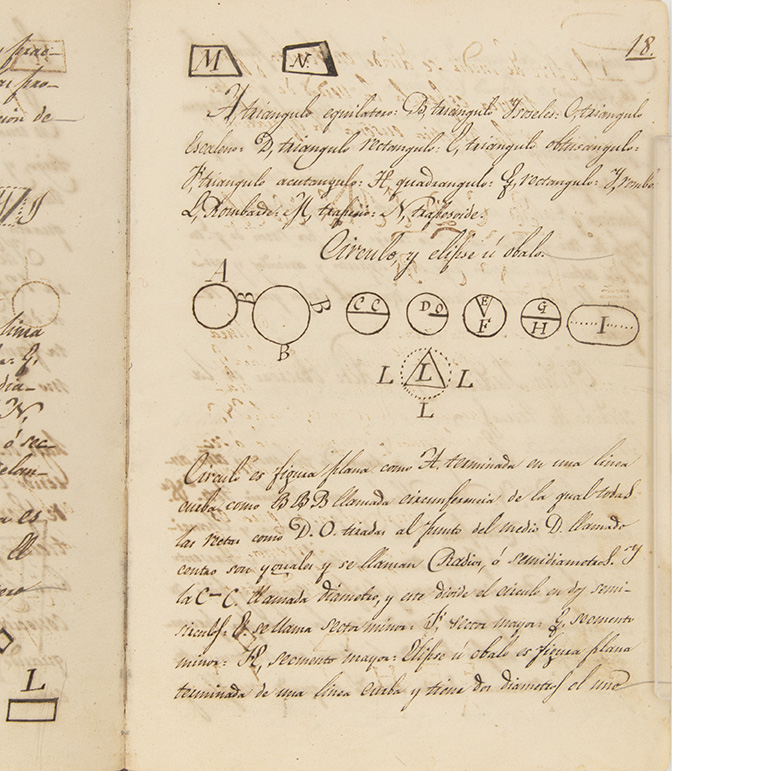 prac-
las pro-
cion de
linea
dia-
N,
ó sec-
es
el
L
18.
M N
A, triangulo equilatero: B, triangulo Ysoceles: C, triangulo
Escaleno: D, triangulo rectangulo: E, triangulo obtusangulo:
F, triangulo acutangulo: H, quadrangulo: G, rectangulo: Y, rombo
L, Romboide: M, trapecio: N, trapesoide.
Circulo, y elipse ú obalo.
A B B B C C D O E F G H I
L L L L
Circulo es figura plana como A. terminada en una linea
curba como B B B llamada circunferencia de la qual todas
las retas como D. O. tiradas al punto del medio D. llamado
centro son yguales y se llaman Radios, ó semidiametros. Y
la C-C. llamada diámetro, y este divide el circulo en dos semi-
circulos. E. se llama sector minor: F, sector mayor: G, semento
minor: H, semento mayor: Elipse ú obalo es figura plana
terminada de una linea curba y tiene dos diametros el uno